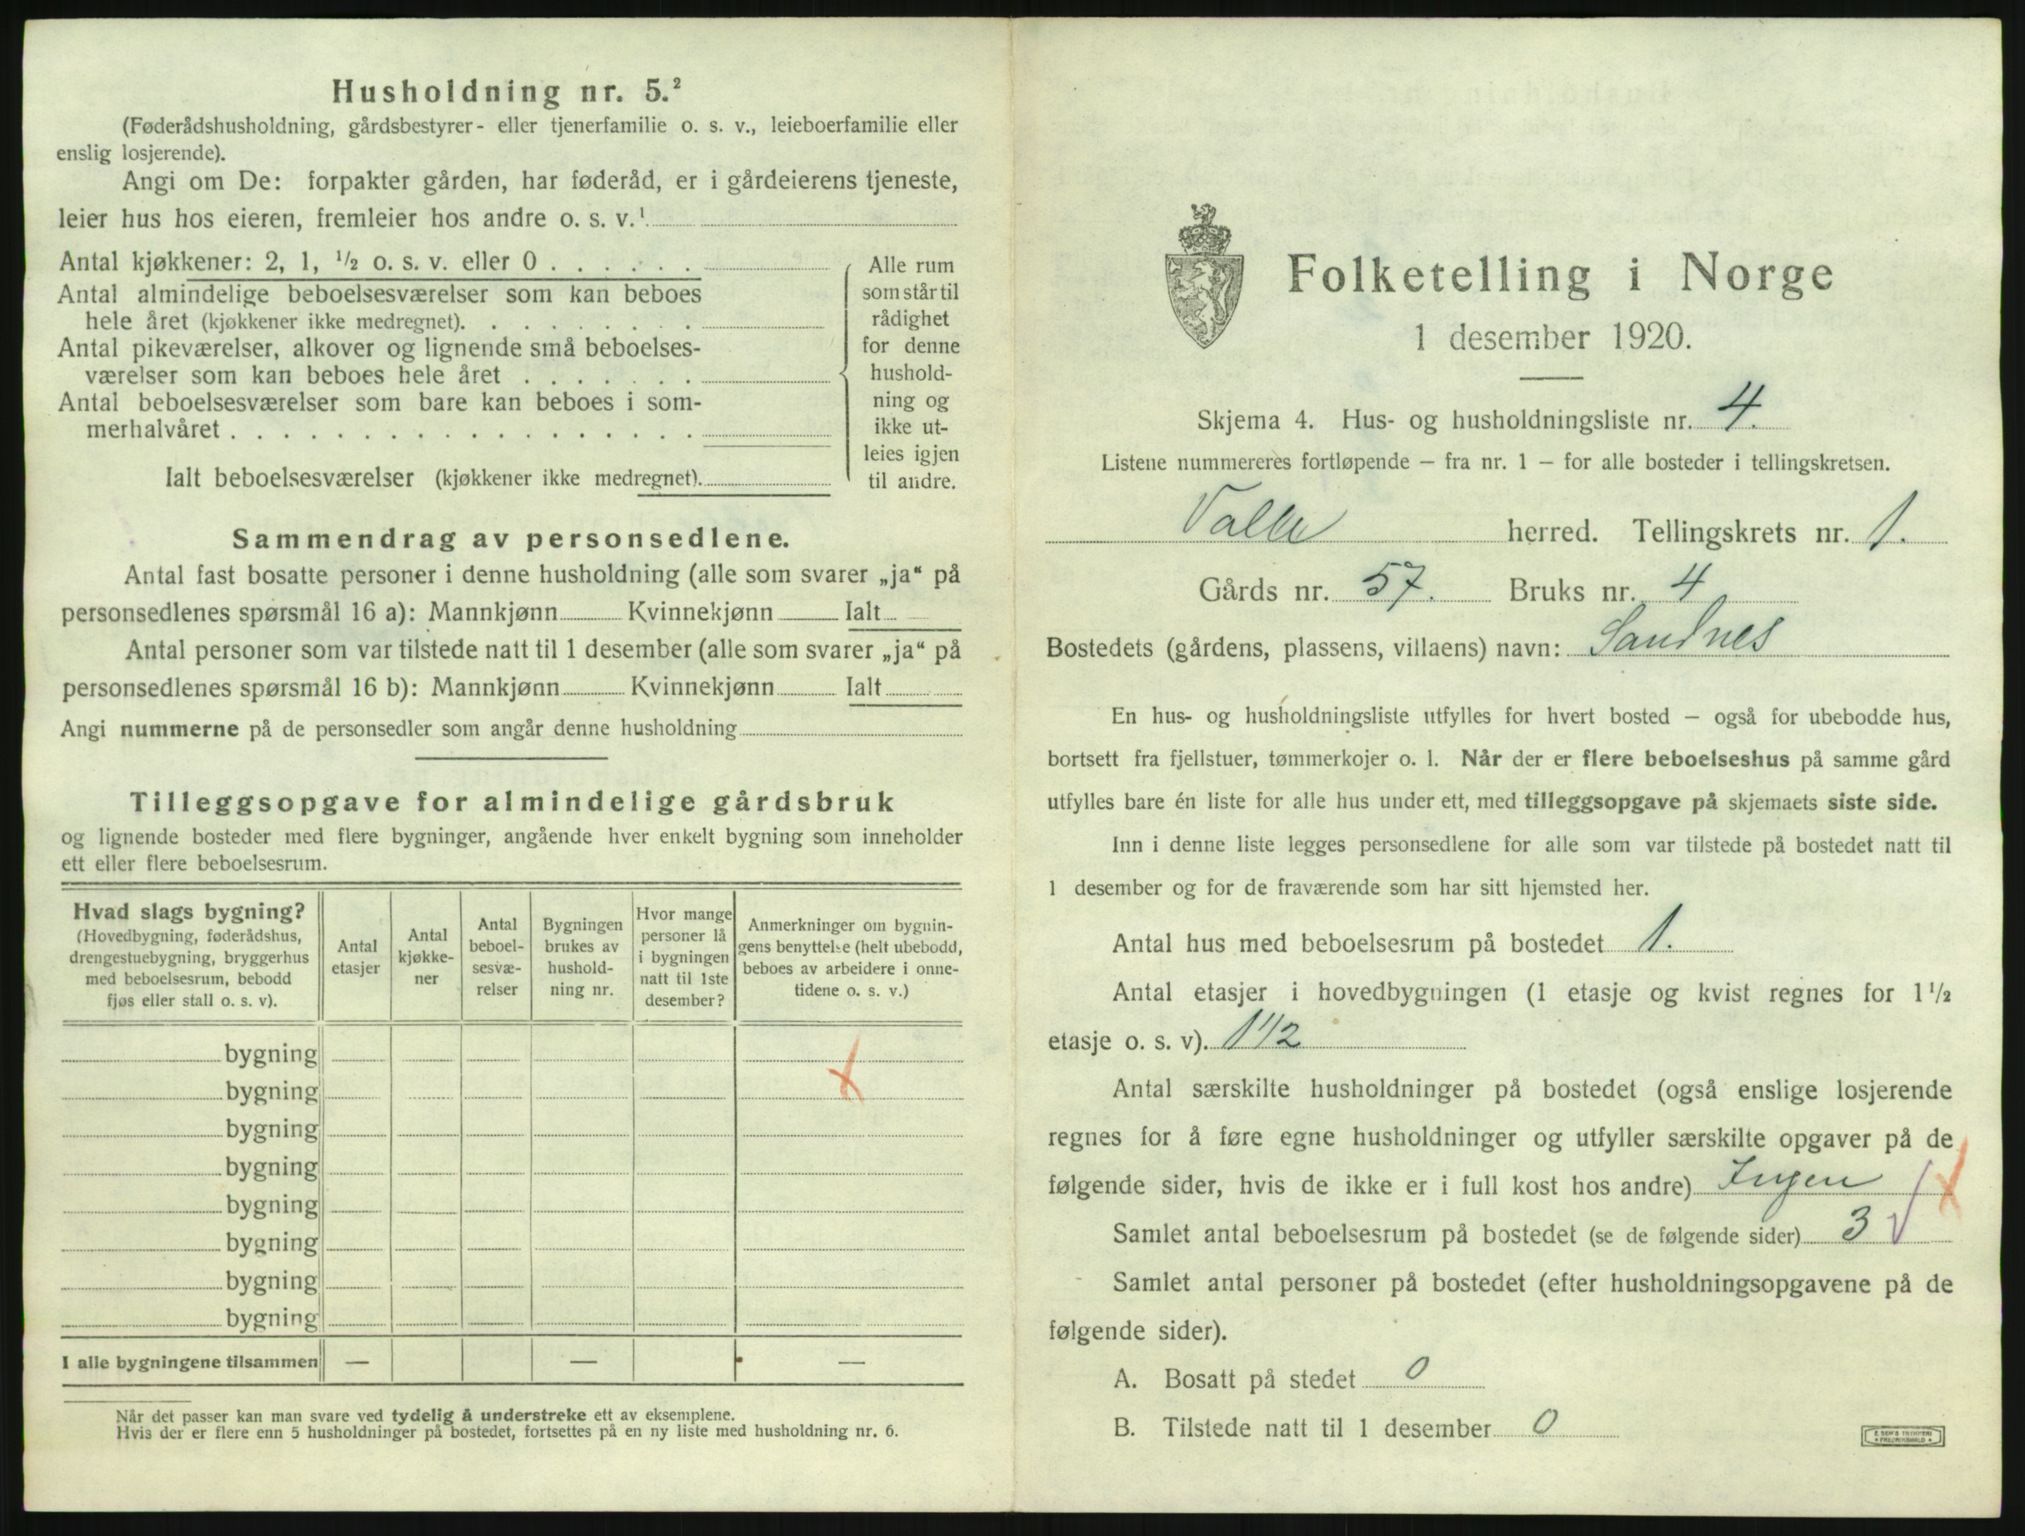 Husholdning nr. 5.²
(Føderådshusholdning, gårdsbestyrer- eller tjenerfamilie o. s. v., leieboerfamilie eller
enslig losjerende).
Angi om De: forpakter gården, har føderåd, er i gårdeierens tjeneste,
leier hus hos eieren, fremleier hos andre o. s. v.¹
Antal kjøkkener: 2, 1, ½ o. s. v. eller 0 . . . . . .
Antal almindelige beboelsesværelser som kan beboes
hele året (kjøkkener ikke medregnet). . . . . . . . .
Antal pikeværelser, alkover og lignende små beboelses-
værelser som kan beboes hele året . . . . . . .
Antal beboelsesværelser som bare kan beboes i som-
merhalvåret . . . . . . . . . . . . . . . . . .
Ialt beboelsesværelser (kjøkkener ikke medregnet).
Alle rum
som står til
rådighet
for denne
hushold-
ning og
ikke ut-
leies igjen
til andre.
Sammendrag av personsedlene.
Antal fast bosatte personer i denne husholdning (alle som svarer „ja“ på
personsedlenes spørsmål 16 a): Mannkjønn Kvinnekjønn Ialt
Antal personer som var tilstede natt til 1 desember (alle som svarer „ja“ på
personsedlenes spørsmål 16 b): Mannkjønn Kvinnekjønn Ialt
Angi nummerne på de personsedler som angår denne husholdning
Tilleggsopgave for almindelige gårdsbruk
og lignende bosteder med flere bygninger, angående hver enkelt bygning som inneholder
ett eller flere beboelsesrum.
Hvad slags bygning?
(Hovedbygning, føderådshus,
drengestuebygning, bryggerhus
med beboelsesrum, bebodd
fjøs eller stall o. s. v).
Antal
etasjer
Antal
kjøkke-
ner
Antal
beboel-
sesvæ-
relser
Bygningen
brukes av
hushold-
ning nr.
Hvor mange
personer lå
i bygningen
natt til 1ste
desember?
Anmerkninger om bygnin-
gens benyttelse (helt ubebodd,
beboes av arbeidere i onne-
tidene o. s. v.)
bygning
bygning
bygning
bygning
bygning
bygning
bygning
bygning
I alle bygningene tilsammen — — —
Når det passer kan man svare ved tydelig å understreke ett av eksemplene.
Hvis der er flere enn 5 husholdninger på bostedet, fortsettes på en ny liste med husholdning nr. 6.
Folketelling i Norge
1 desember 1920.
Skjema 4. Hus- og husholdningsliste nr. 4.
Listene nummereres fortløpende – fra nr. 1 – for alle bosteder i tellingskretsen.
Valle herred. Tellingskrets nr. 1.
Gårds nr. 57. Bruks nr. 4
Bostedets (gårdens, plassens, villaens) navn: Sandnes
En hus- og husholdningsliste utfylles for hvert bosted – også for ubebodde hus,
bortsett fra fjellstuer, tømmerkojer o. l. Når der er flere beboelseshus på samme gård
utfylles bare én liste for alle hus under ett, med tilleggsopgave på skjemaets siste side.
Inn i denne liste legges personsedlene for alle som var tilstede på bostedet natt til
1 desember og for de fraværende som har sitt hjemsted her.
Antal hus med beboelsesrum på bostedet 1.
Antal etasjer i hovedbygningen (1 etasje og kvist regnes for 1½
etasje o. s. v). 1 1/2
Antal særskilte husholdninger på bostedet (også enslige losjerende
regnes for å føre egne husholdninger og utfyller særskilte opgaver på de
følgende sider, hvis de ikke er i full kost hos andre) Ingen
Samlet antal beboelsesrum på bostedet (se de følgende sider) 3
Samlet antal personer på bostedet (efter husholdningsopgavene på de
følgende sider).
A. Bosatt på stedet 0
B. Tilstede natt til 1 desember 0